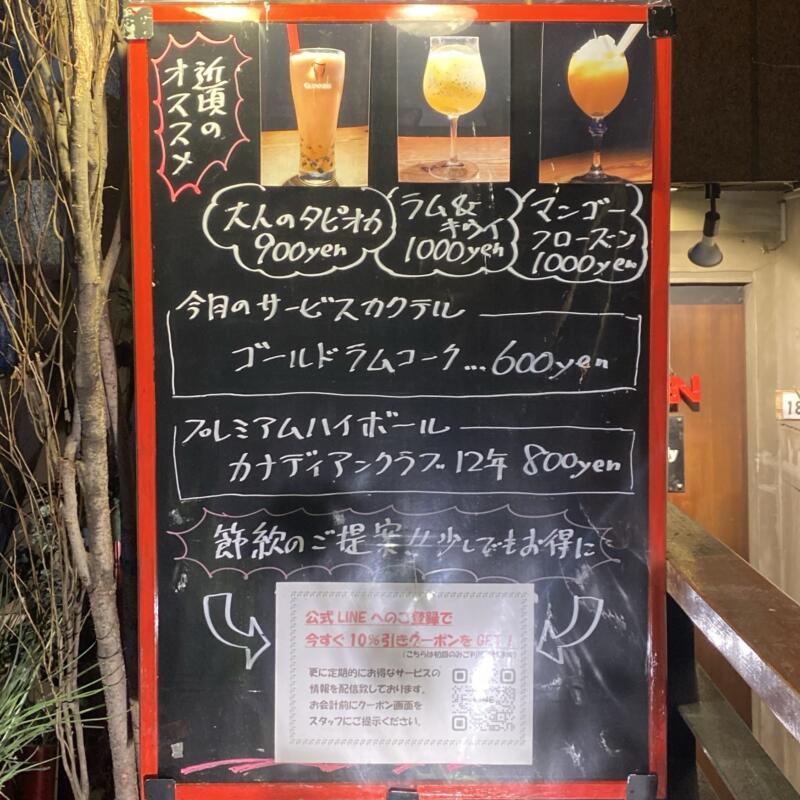 近頃の
オススメ
GUINNESS
大人のタピオカ
900yen
ラム&
キウイ
1000yen
マンゴー
フローズン
1000yen
今月のサービスカクテル
ゴールドラムコーク…600yen
プレミアムハイボール
カナディアンクラブ12年 800yen
節約のご提案!!少しでもお得に
公式LINEへのご登録で
今すぐ10%引きクーポンをGET!
(こちらは初回のみご利用
更に定期的にお得なサービスの
情報を配信致しております。
お会計前にクーポン画面を
スタッフにご提示ください。
LINE
18